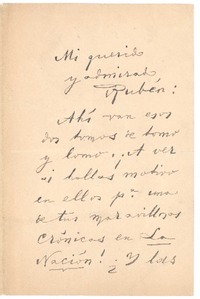 Mi querido
y admirado
Rubén:
Ahí van esos
dos tomos de tomo
y lomo. A ver
si hallas motivo
en ellos pª una
de tus maravillosas
crónicas en La
Nación! ¿Y las